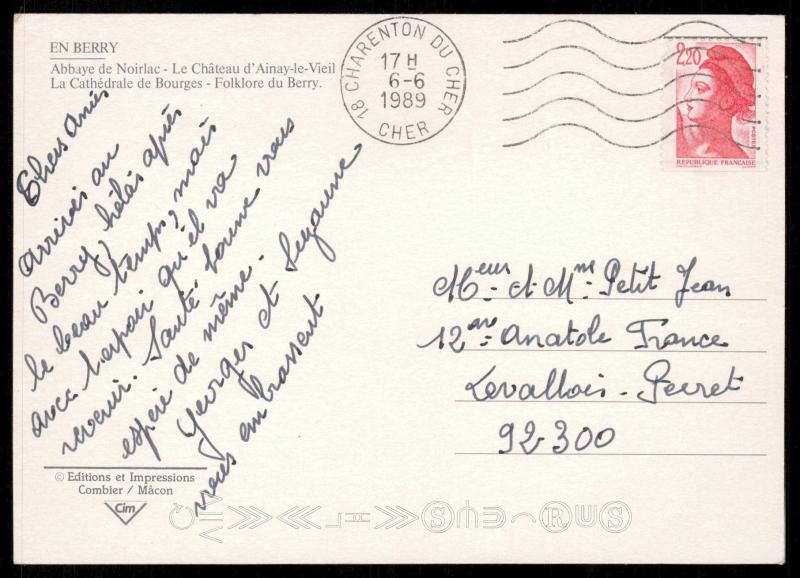 EN BERRY
Abbaye de Noirlac - Le Château d'Ainay-le-Vieil
La Cathédrale de Bourges - Folklore du Berry.
18 CHARENTON DU CHER
17 H
6-6
1989
CHER
2,20
POSTES
REPUBLIQUE FRANÇAISE
Chers Amis
arrivés au
Berry, hélas après
le beau temps, mais
avec l'espoir qu'il va
revenir. Santé bonne vous
espère de même.
Georges et Suzanne
vous embrassent
Meur et Mme Petit Jean
12 av Anatole France
Levallois-Perret
92300
© Editions et Impressions
Combier / Mâcon
Cim